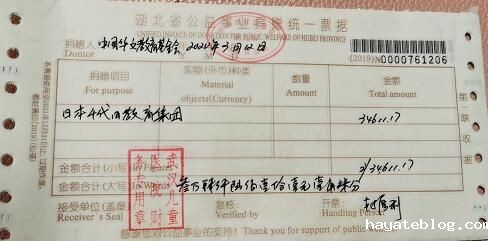 湖北省公益事业捐赠统一票据
UNIFIED INVOICE OF DONATION FOR PUBLIC WELFARE OF HUBEI PROVINCE
捐赠人 中国华文教育基金会 2020年3月12日
Dontor
(2019) No 0000761206
捐赠项目
For purpose
实物(外币)种类
Material
objects(Currency)
数量
Amount
金额
Total amount
日本千代田教育集团
34611.17
金额合计(小写)In Figures
34611.17
金额合计(大写)In Words
叁万肆仟陆佰壹拾壹元壹角柒分
接受单位(盖章)
Receiver's Seal
复核:
Verified by
开票:
Handling Person
感谢您对公益事业的支持! Thank you for support of public welfare
第一联收据
武汉儿童
医院财
务专用章
hayateblog.com